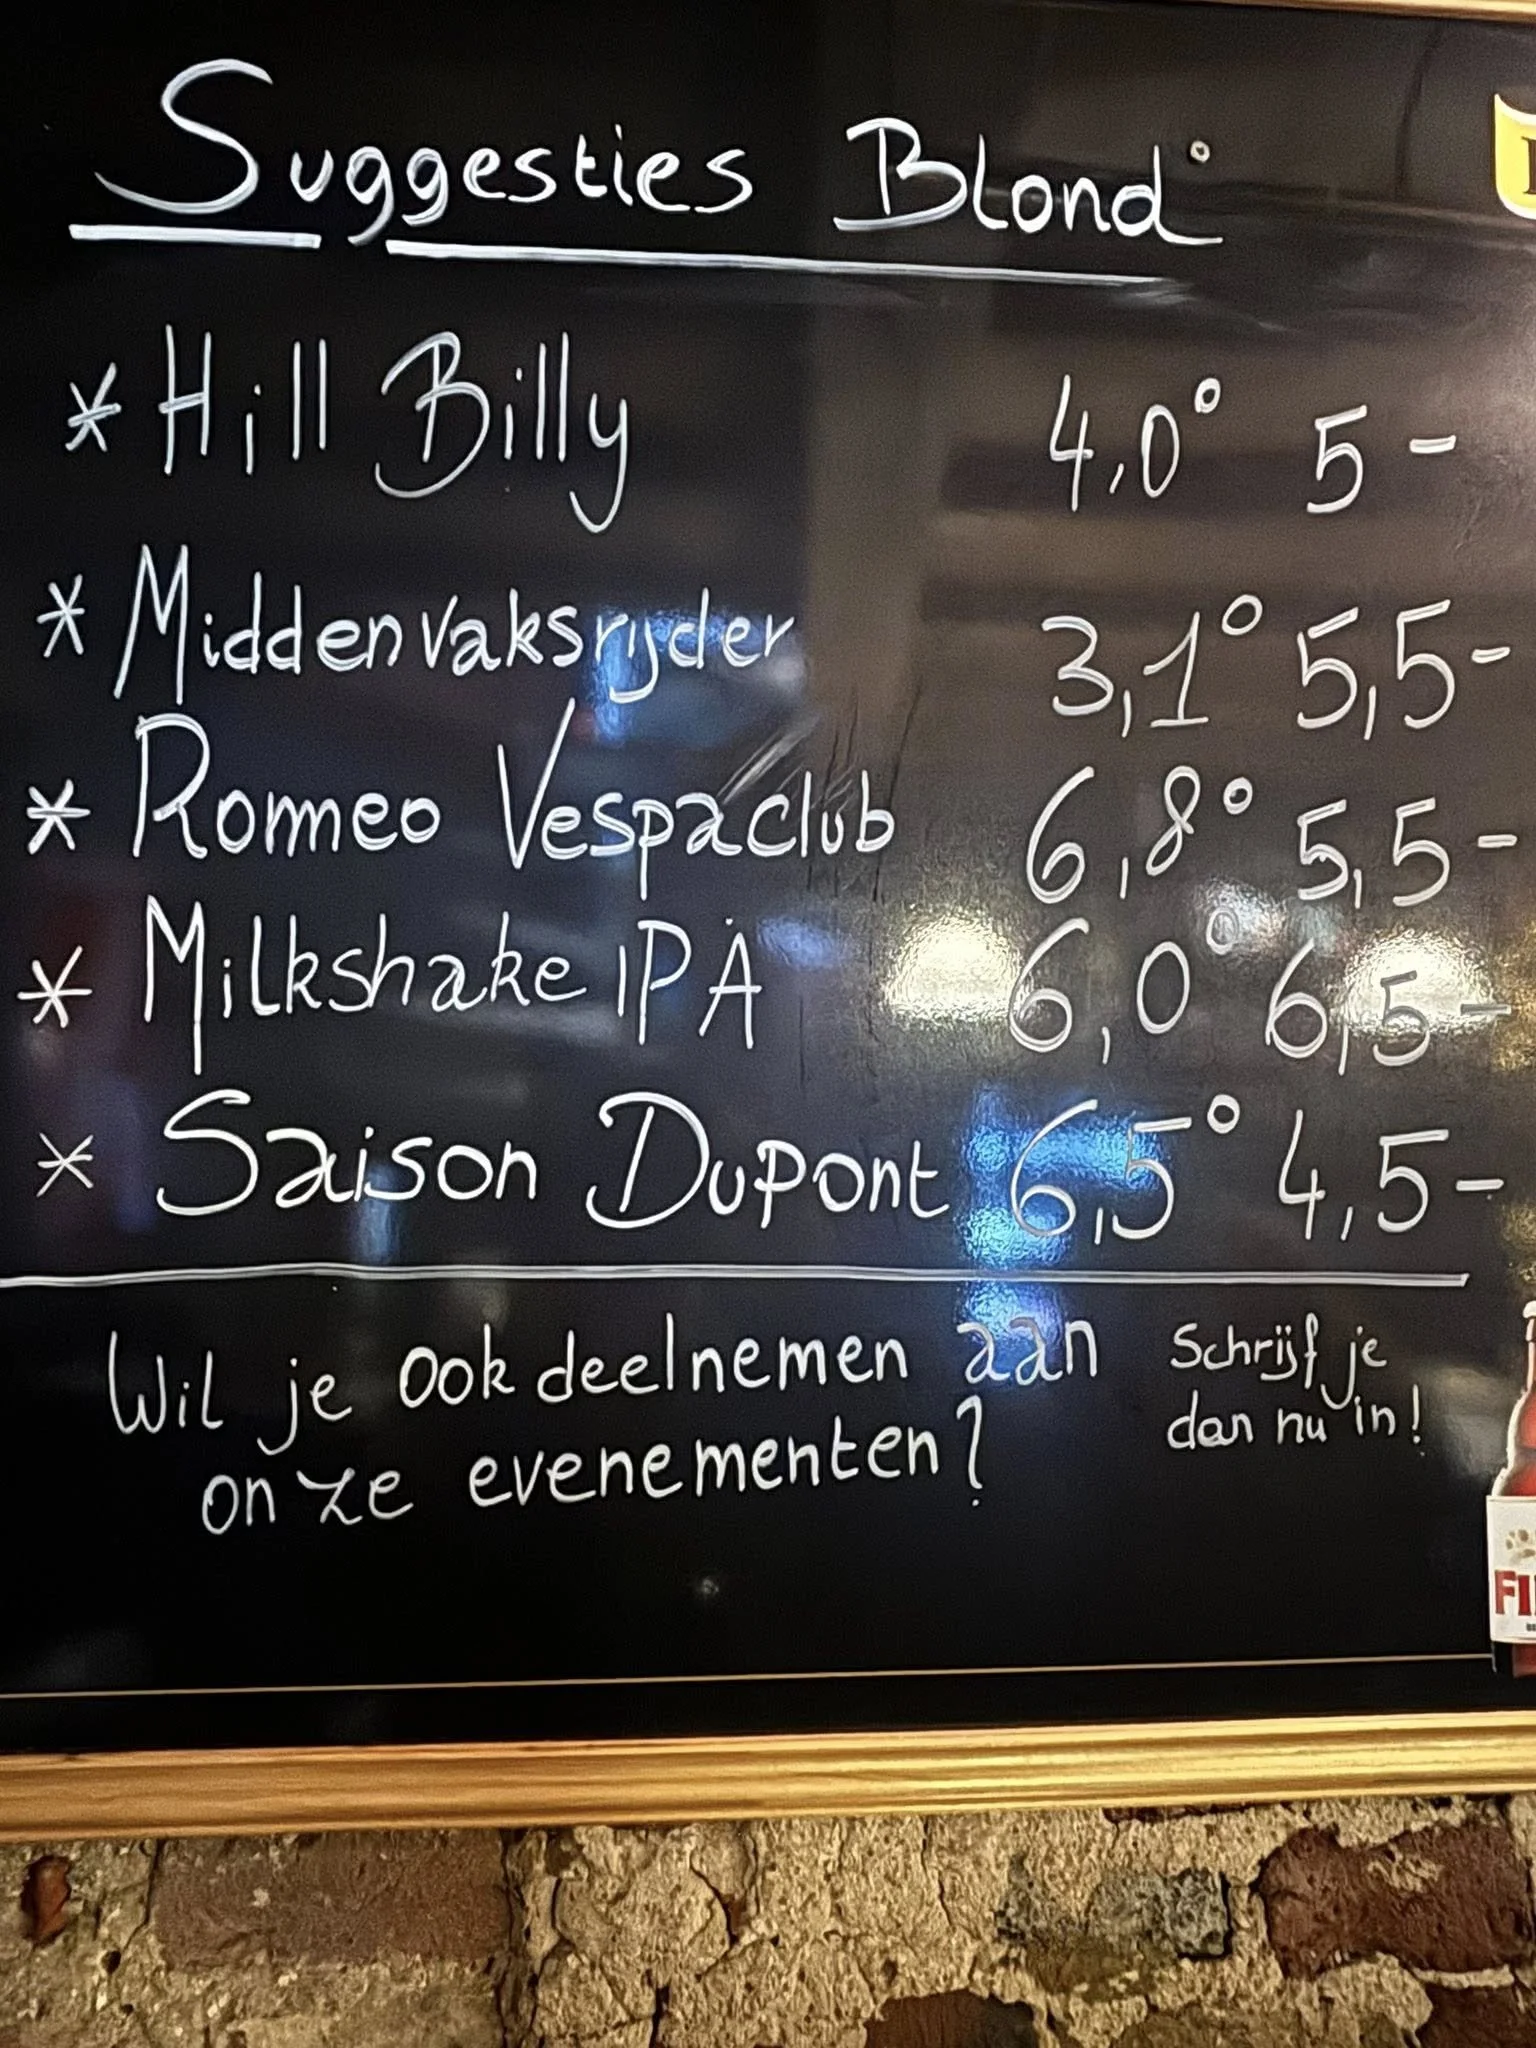 Suggesties Blond°
* Hill Billy 4,0° 5-
* Middenvaksrijder 3,1° 5,5-
* Romeo Vespaclub 6,8° 5,5-
* Milkshake IPA 6,0° 6,5-
* Saison Dupont 6,5° 4,5-
Wil je ook deelnemen aan
onze evenementen?
Schrijf je
dan nu in!